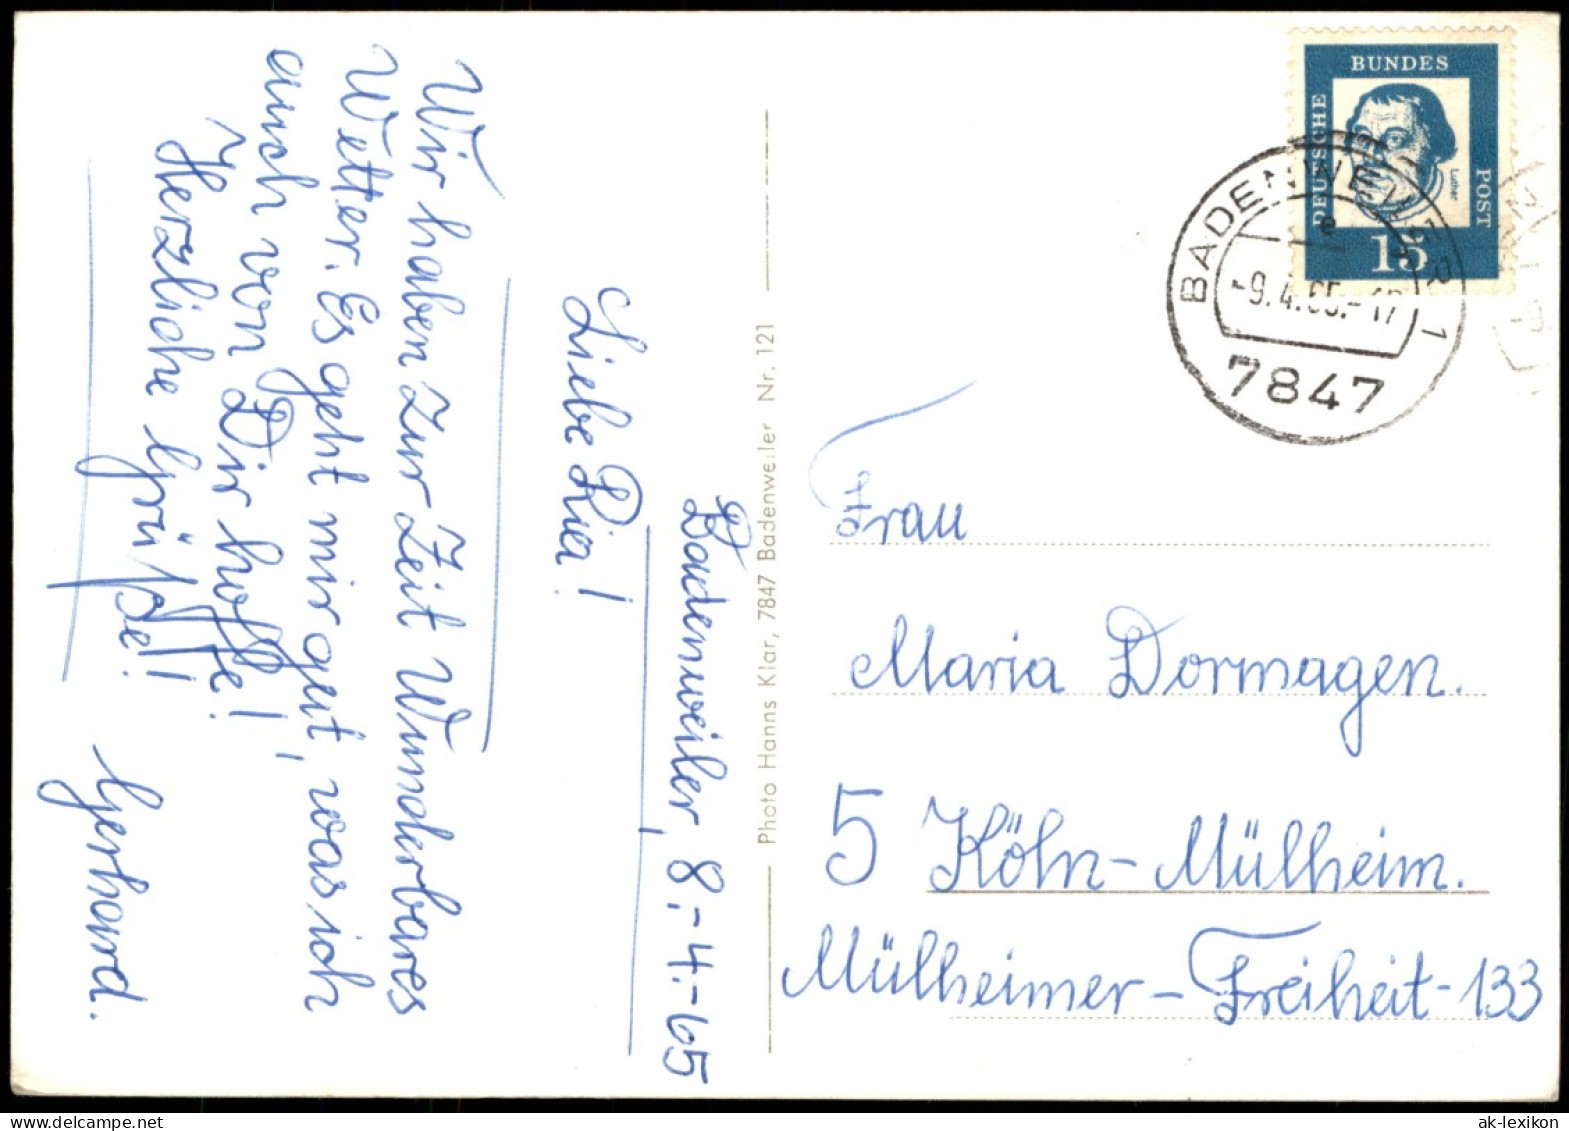 Badenweiler, 8.-4.-65
Liebe Ria!
Wir haben zur Zeit Wunderbares
Wetter. Es geht mir gut, was ich
auch von Dir hoffe!
Herzliche Grüße!!
Gerhard.
Photo Hanns Klar, 7847 Badenweiler Nr. 121
DEUTSCHE
BUNDES
POST
Luther
15
BADENWEILER 1
e
-9.4.65.-17
7847
Frau
Maria Dormagen.
5 Köln-Mülheim.
Mülheimer-Freiheit-133
ak-lexikon